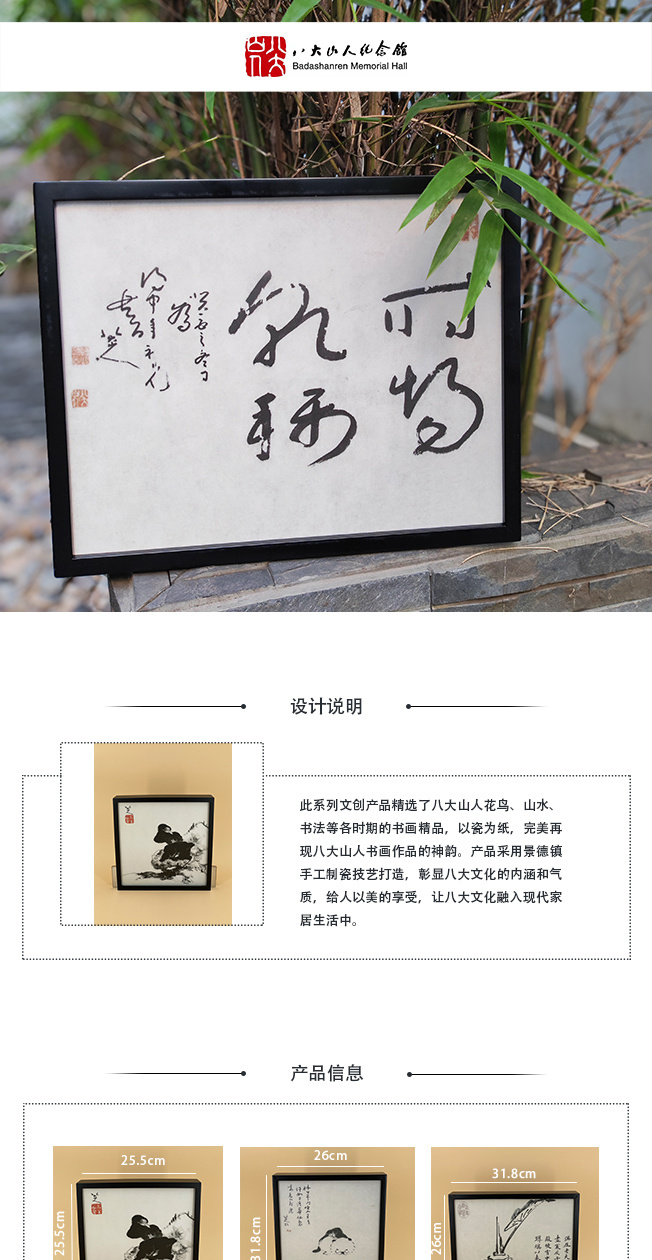 八大山人纪念馆
Badashanren Memorial Hall
时惕
乾称
设计说明
此系列文创产品精选了八大山人花鸟、山水、
书法等各时期的书画精品，以瓷为纸，完美再
现八大山人书画作品的神韵。产品采用景德镇
手工制瓷技艺打造，彰显八大文化的内涵和气
质，给人以美的享受，让八大文化融入现代家
居生活中。
产品信息
25.5cm
26cm
31.8cm
25.5cm
31.8cm
26cm